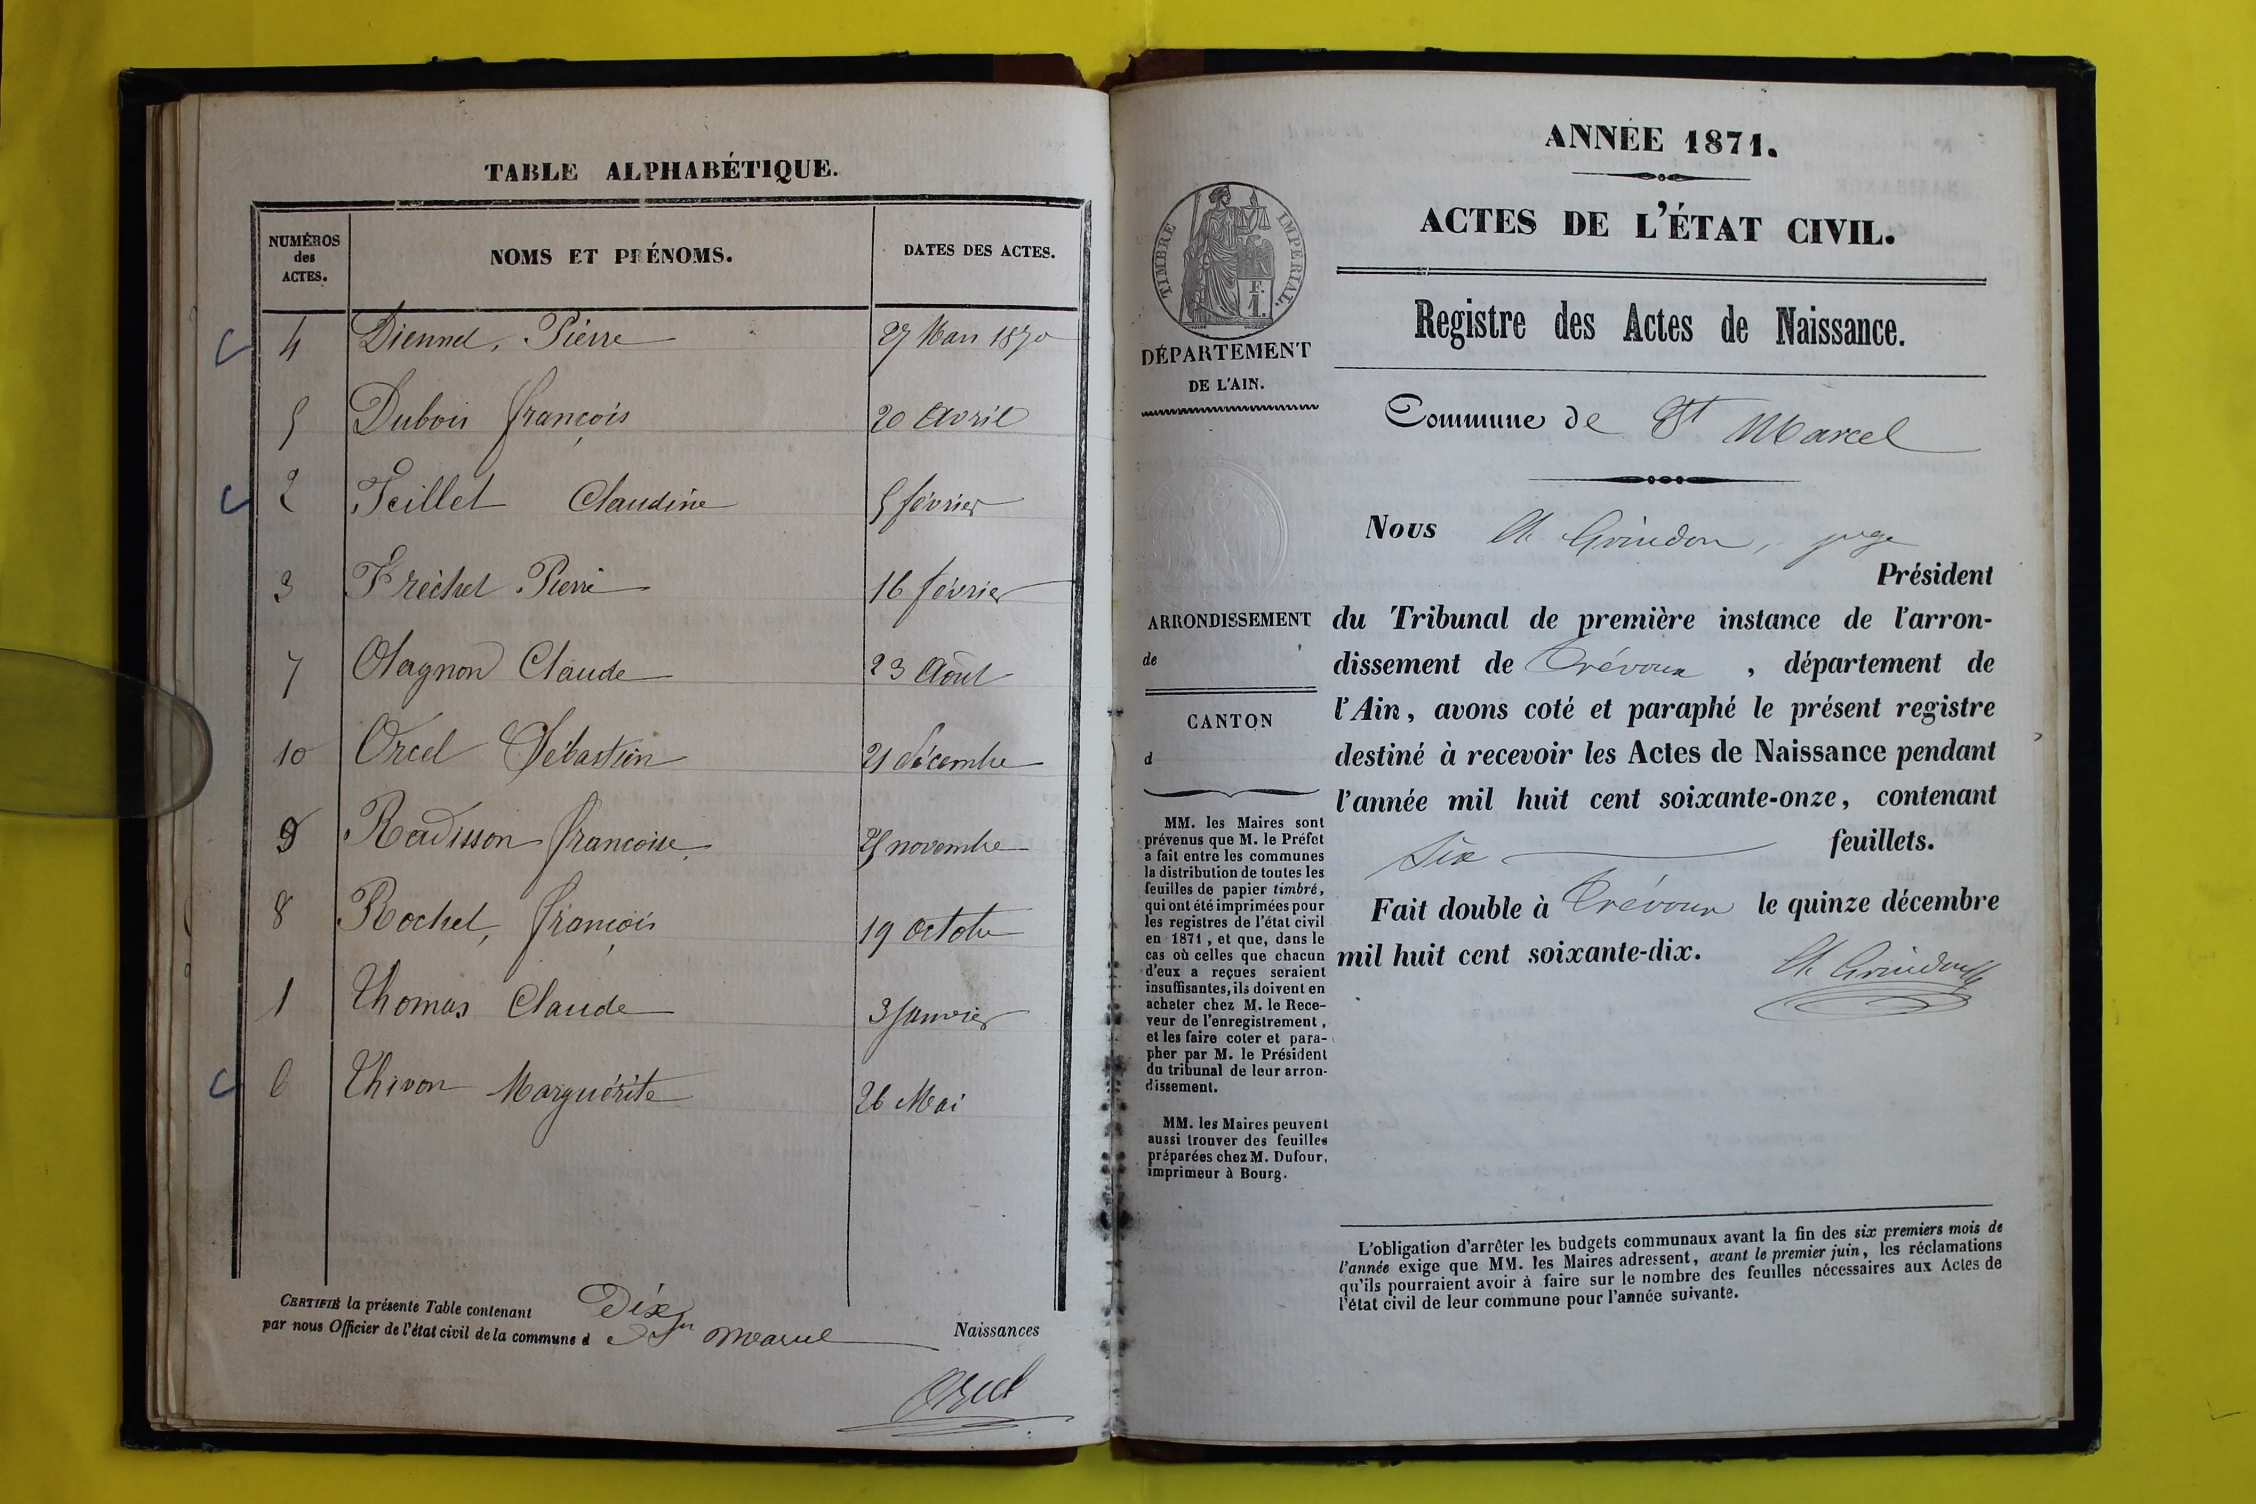 TABLE ALPHABÉTIQUE.
NUMÉROS des ACTES. NOMS ET PRÉNOMS. DATES DES ACTES.
4 Diennet, Pierre 27 Mars 1870
5 Dubois françois 20 Avril
2 Feillet Claudine 5 février
3 Fréchet Pierre 16 février
7 Olagnon Claude 23 Août
10 Orcel Sébastien 21 décembre
9 Radisson francoise 25 novembre
8 Rochet, françois 19 octobre
1 Thomas Claude 3 Janvier
6 Thivon Marguérite 26 Mai
CERTIFIÉ la présente Table contenant Dix Naissances
par nous Officier de l'état civil de la commune d St Marcel
Orcel
ANNÉE 1871.
ACTES DE L'ÉTAT CIVIL.
TIMBRE IMPÉRIAL.
F.
1.
DÉPARTEMENT
DE L'AIN.
ARRONDISSEMENT
de
CANTON
d
MM. les Maires sont
prévenus que M. le Préfet
a fait entre les communes
la distribution de toutes les
feuilles de papier timbré,
qui ont été imprimées pour
les registres de l'état civil
en 1871, et que, dans le
cas où celles que chacun
d'eux a reçues seraient
insuffisantes, ils doivent en
acheter chez M. le Rece-
veur de l'enregistrement,
et les faire coter et para-
pher par M. le Président
du tribunal de leur arron-
dissement.
MM. les Maires peuvent
aussi trouver des feuilles
préparées chez M. Dufour,
imprimeur à Bourg.
Registre des Actes de Naissance.
Commune de St Marcel
Nous Ch Grindon, juge
Président
du Tribunal de première instance de l'arron-
dissement de Trévoux, département de
l'Ain, avons coté et paraphé le présent registre
destiné à recevoir les Actes de Naissance pendant
l'année mil huit cent soixante-onze, contenant
Six feuillets.
Fait double à Trévoux le quinze décembre
mil huit cent soixante-dix.
Ch Grindon
L'obligation d'arrêter les budgets communaux avant la fin des six premiers mois de
l'année exige que MM. les Maires adressent, avant le premier juin, les réclamations
qu'ils pourraient avoir à faire sur le nombre des feuilles nécessaires aux Actes de
l'état civil de leur commune pour l'année suivante.